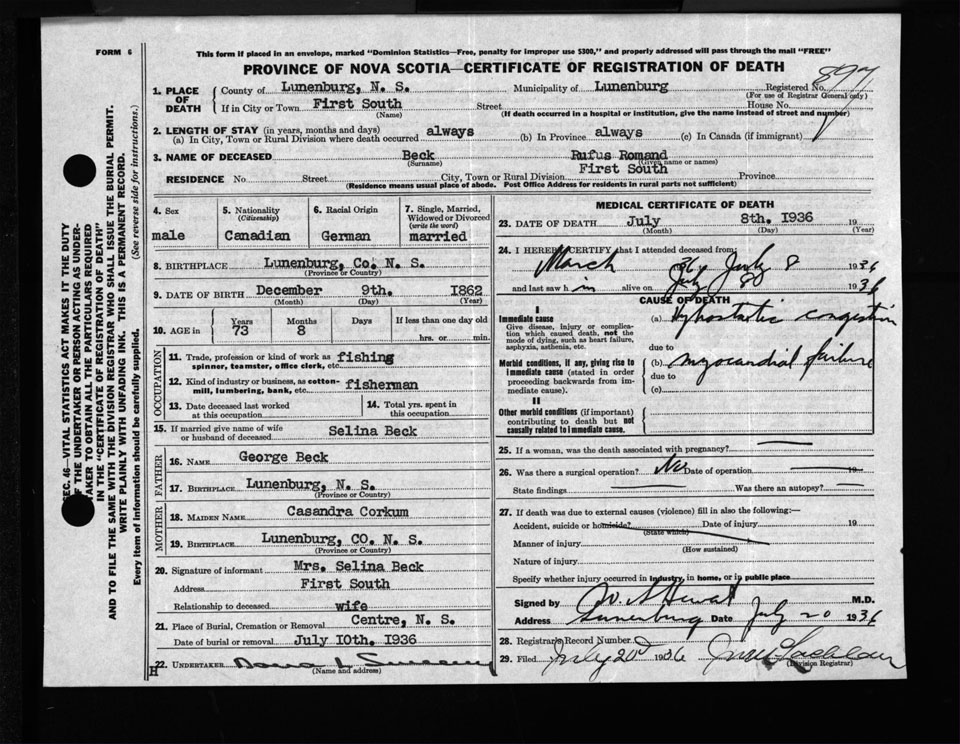 FORM 6
This form if placed in an envelope, marked "Dominion Statistics—Free, penalty for improper use $300," and properly addressed will pass through the mail "FREE"
PROVINCE OF NOVA SCOTIA—CERTIFICATE OF REGISTRATION OF DEATH
897
1. PLACE OF DEATH
County of Lunenburg, N. S. Municipality of Lunenburg Registered No.
(For use of Registrar General only)
If in City or Town First South Street House No.
(Name) (If death occurred in a hospital or institution, give the name instead of street and number)
2. LENGTH OF STAY (in years, months and days)
(a) In City, Town or Rural Division where death occurred always (b) In Province always (c) In Canada (if immigrant)
3. NAME OF DECEASED Beck Rufus Romand
(Surname) (Given name or names)
First South
RESIDENCE No. Street City, Town or Rural Division Province
(Residence means usual place of abode. Post Office Address for residents in rural parts not sufficient)
4. Sex 5. Nationality (Citizenship) 6. Racial Origin 7. Single, Married, Widowed or Divorced (write the word)
male Canadian German married
8. BIRTHPLACE Lunenburg, Co. N. S.
(Province or Country)
9. DATE OF BIRTH December 9th. I862
(Month) (Day) (Year)
10. AGE in Years Months Days If less than one day old
73 8 hrs. or min.
OCCUPATION
11. Trade, profession or kind of work as fishing
spinner, teamster, office clerk, etc.
12. Kind of industry or business, as cotton- fisherman
mill, lumbering, bank, etc.
13. Date deceased last worked at this occupation 14. Total yrs. spent in this occupation
15. If married give name of wife or husband of deceased Selina Beck
FATHER
16. NAME George Beck
17. BIRTHPLACE Lunenburg, N. S.
(Province or Country)
MOTHER
18. MAIDEN NAME Casandra Corkum
19. BIRTHPLACE Lunenburg, CO. N. S.
(Province or Country)
20. Signature of informant Mrs. Selina Beck
Address First South
Relationship to deceased wife
21. Place of Burial, Cremation or Removal Centre, N. S.
Date of burial or removal July I0th. I936
22. UNDERTAKER
(Name and address)
MEDICAL CERTIFICATE OF DEATH
23. DATE OF DEATH July 8th. I936 19
(Month) (Day) (Year)
24. I HEREBY CERTIFY that I attended deceased from:
March 36 July 8 1936
and last saw h im alive on July 8 1936
CAUSE OF DEATH
I
Immediate cause
Give disease, injury or complication which caused death, not the mode of dying, such as heart failure, asphyxia, asthenia, etc.
(a) Hyhostatic congestion
due to
Morbid conditions, if any, giving rise to immediate cause (stated in order proceeding backwards from immediate cause).
(b) myocardial failure
due to
(c)
II
Other morbid conditions (if important) contributing to death but not causally related to immediate cause.
25. If a woman, was the death associated with pregnancy?
26. Was there a surgical operation? No Date of operation 19
State findings Was there an autopsy?
27. If death was due to external causes (violence) fill in also the following:—
Accident, suicide or homicide? Date of injury 19
(State which)
Manner of injury
(How sustained)
Nature of injury
Specify whether injury occurred in Industry, in home, or in public place
Signed by M.D.
Address Lunenburg Date July 20 1936
28. Registrar's Record Number
29. Filed July 20 1936
(Division Registrar)
SEC. 46—VITAL STATISTICS ACT MAKES IT THE DUTY
OF THE UNDERTAKER OR PERSON ACTING AS UNDER-
TAKER TO OBTAIN ALL THE PARTICULARS REQUIRED
IN THE "CERTIFICATE OF REGISTRATION OF DEATH"
AND TO FILE THE SAME WITH THE DIVISION REGISTRAR WHO SHALL ISSUE THE BURIAL PERMIT.
WRITE PLAINLY WITH UNFADING INK. THIS IS A PERMANENT RECORD.
Every item of information should be carefully supplied. (See reverse side for instructions.)